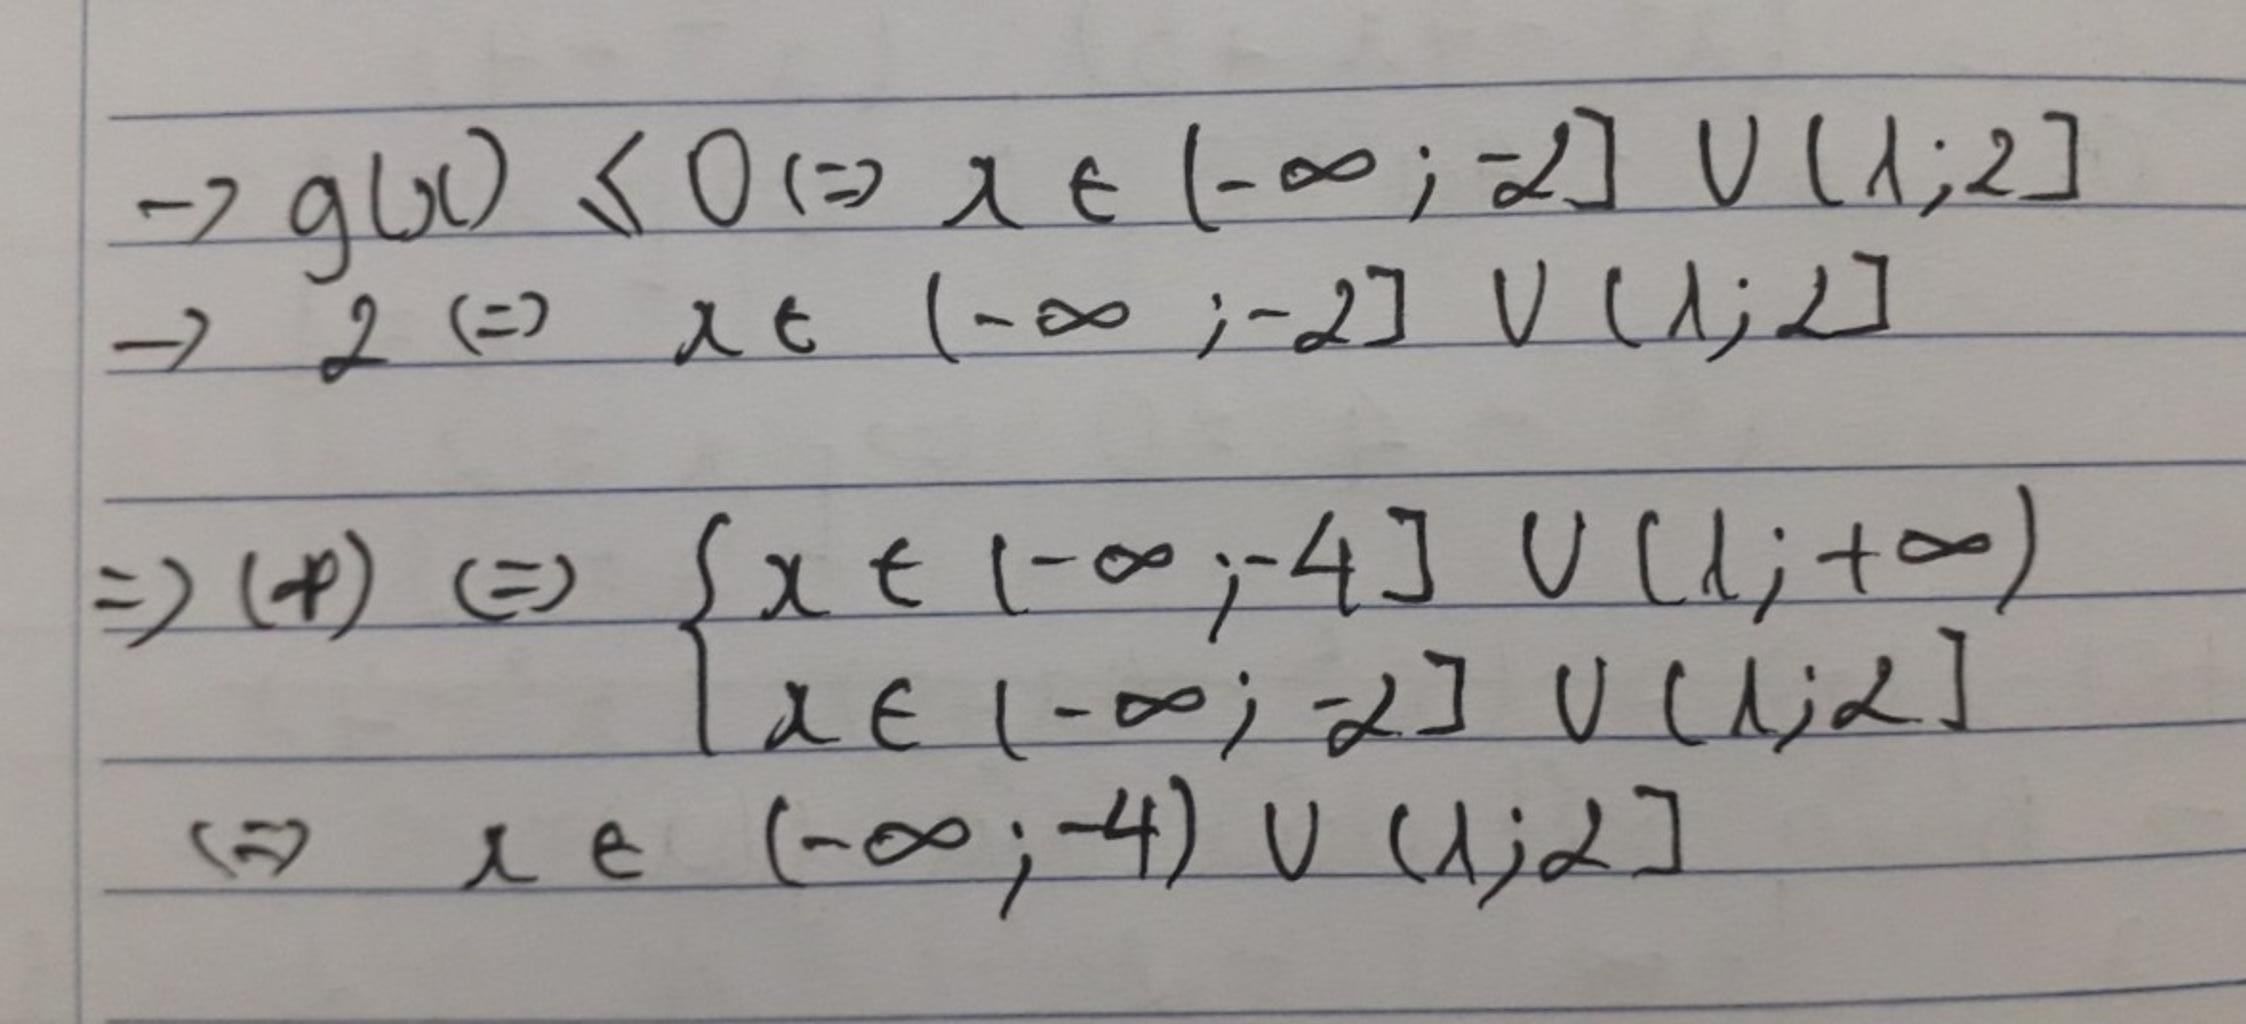 → g(x) ≤ 0 (=) x ∈ (-∞ ; -2] ∪ (1;2]
→ 2 (=) x ∈ (-∞ ; -2] ∪ (1;2]
=> (*) (=) { x ∈ (-∞ ; -4] ∪ (1; +∞)
x ∈ (-∞ ; -2] ∪ (1;2]
(=) x ∈ (-∞ ; -4) ∪ (1;2]